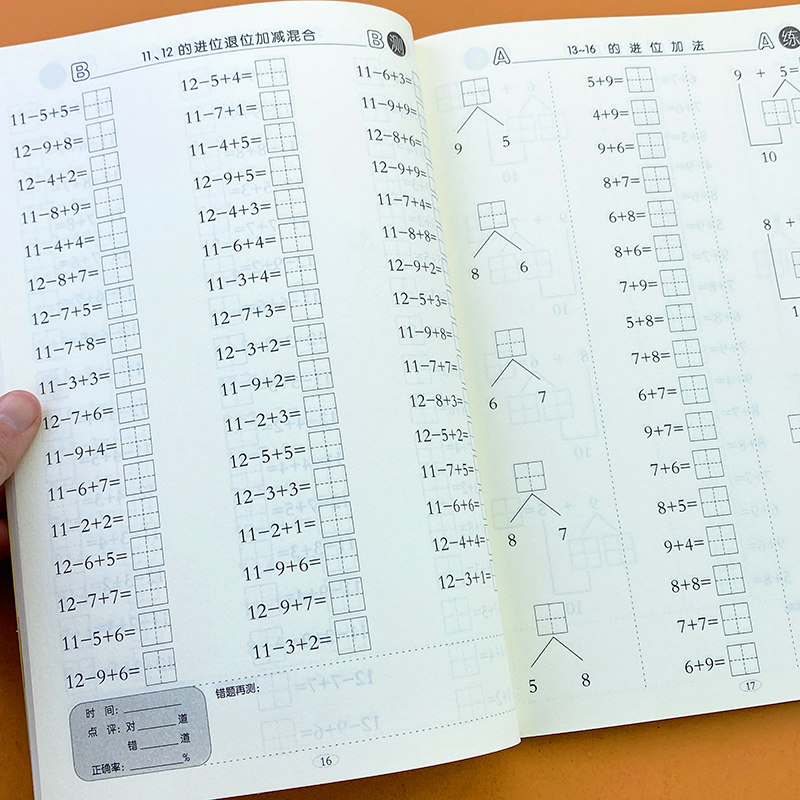 B 11、12的进位退位加减混合 B 测
11−5+5=
12−9+8=
12−4+2=
11−8+9=
11−4+4=
12−8+7=
12−7+5=
11−7+8=
11−3+3=
12−7+6=
11−9+4=
11−6+7=
11−2+2=
12−6+5=
12−7+7=
11−5+6=
12−9+6=
12−5+4=
11−7+1=
11−4+5=
12−9+5=
12−4+3=
11−6+4=
11−3+4=
12−7+3=
12−3+2=
11−9+2=
11−2+3=
12−5+5=
12−3+3=
11−2+1=
11−9+6=
12−9+7=
11−3+2=
11−6+3=
11−9+9=
12−8+6=
12−9+9=
11−7+4=
11−8+8=
12−9+2=
12−5+3=
11−9+8=
11−7+7=
12−8+3=
12−5+2=
11−7+5=
11−6+6=
12−4+4=
12−3+1=
时 间：
点 评：对 道
错 道
正确率： %
错题再测：
16
A 13~16 的进位加法 A 练
9 5
8 6
6 7
8 7
5 8
5+9=
4+9=
9+6=
8+7=
6+8=
8+6=
7+9=
5+8=
7+8=
6+7=
9+7=
7+6=
8+5=
9+4=
8+8=
7+7=
6+9=
9 + 5=
10
8 +
17